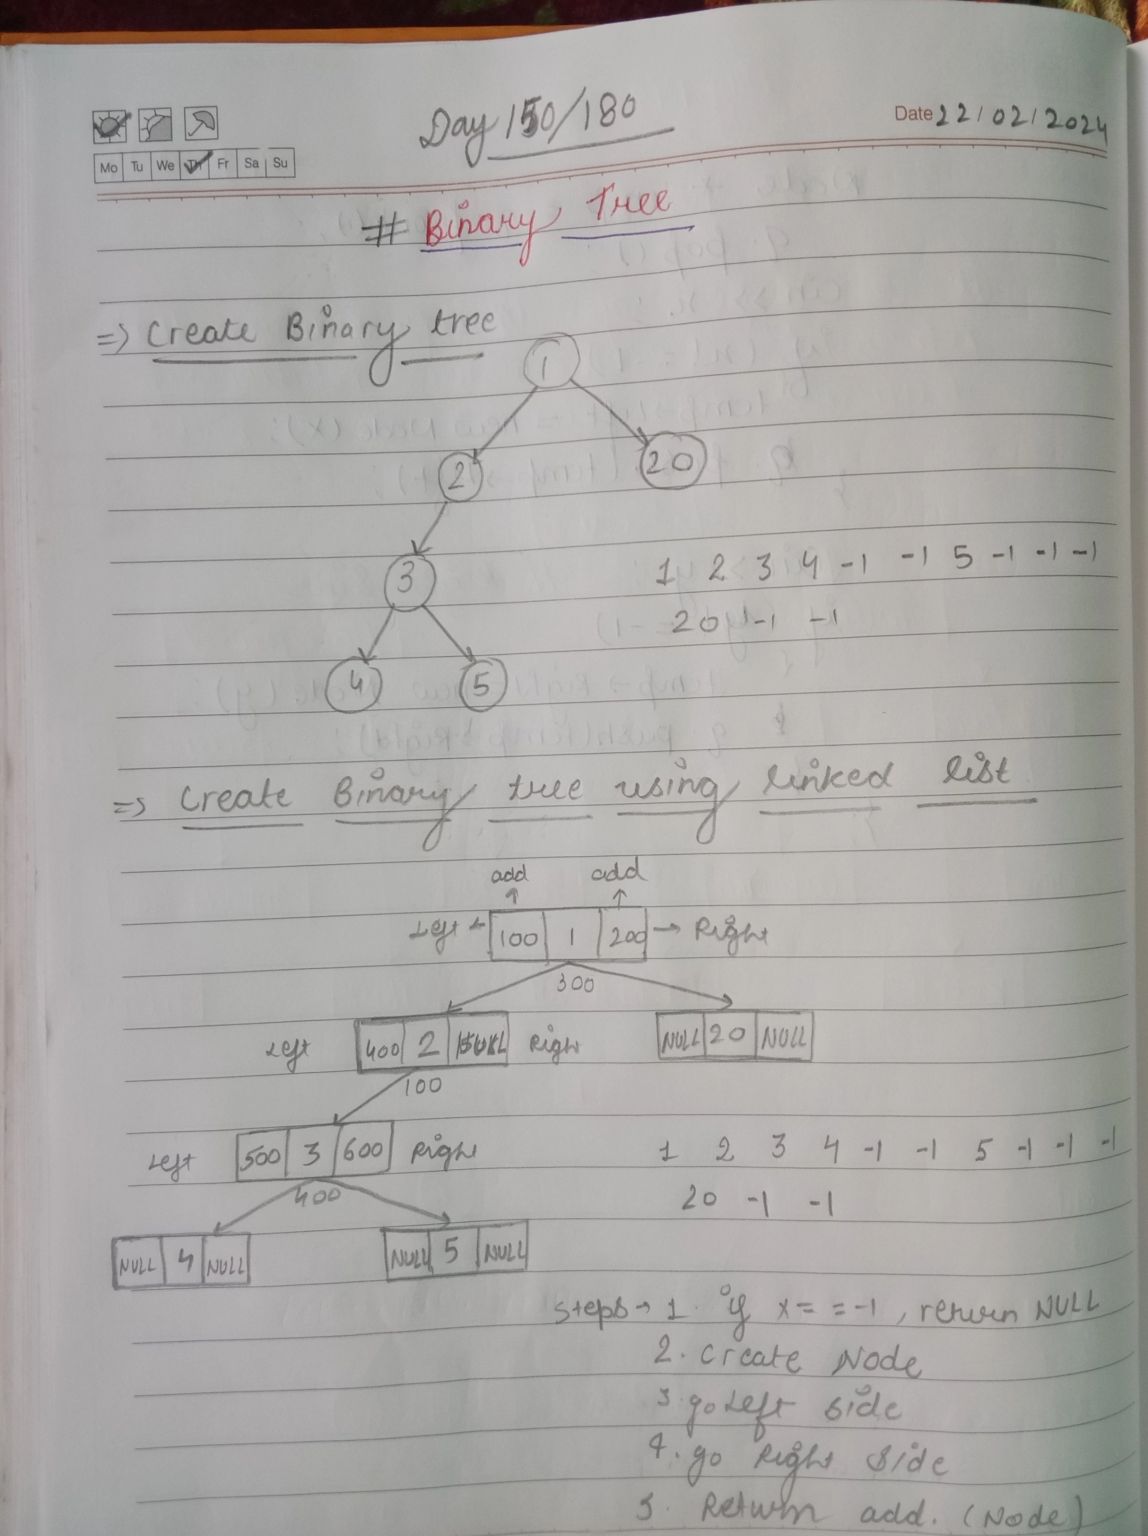 Day 150/180
Date 22/02/2024
Mo Tu We Th Fr Sa Su
# Binary Tree
=> Create Binary tree
1
2 20
3
1 2 3 4 -1 -1 5 -1 -1 -1
20 -1 -1
4 5
=> Create Binary tree using linked list
add add
Left 100 1 200 Right
300
Left 400 2 NULL Right NULL 20 NULL
100
Left 500 3 600 Right
1 2 3 4 -1 -1 5 -1 -1 -1
400
20 -1 -1
NULL 4 NULL NULL 5 NULL
Steps → 1. if x = = -1, return NULL
2. Create Node
3. go Left side
4. go Right side
5. Return add. (Node)